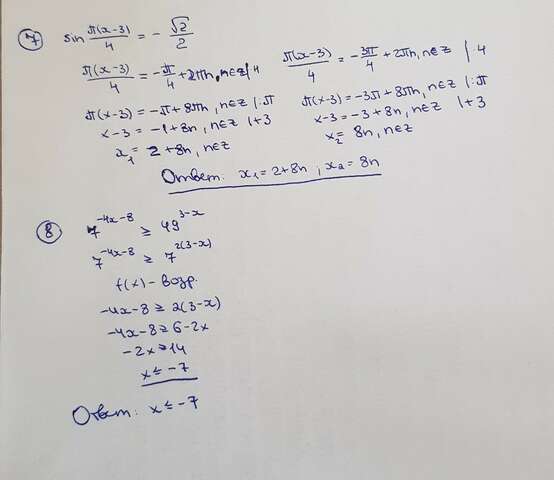 7 sin π(x-3)/4 = - √2/2
π(x-3)/4 = -π/4 + 2πn, n∈Z |·4
π(x-3) = -π + 8πn, n∈Z |:π
x-3 = -1 + 8n, n∈Z |+3
x₁ = 2 + 8n, n∈Z
π(x-3)/4 = -3π/4 + 2πn, n∈Z |·4
π(x-3) = -3π + 8πn, n∈Z |:π
x-3 = -3 + 8n, n∈Z |+3
x₂ = 8n, n∈Z
Ответ: x₁ = 2+8n ; x₂ = 8n
8 7^(-4x-8) ≥ 49^(3-x)
7^(-4x-8) ≥ 7^(2(3-x))
f(x) - возр.
-4x-8 ≥ 2(3-x)
-4x-8 ≥ 6-2x
-2x ≥ 14
x ≤ -7
Ответ: x ≤ -7